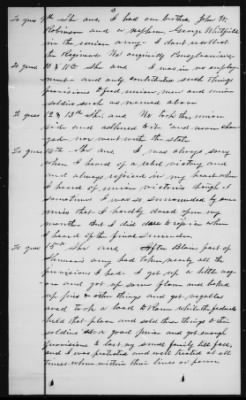 To ques 9th She ans, I had one brother John W.
Robinson and a nephew George Whitfield
in the union army. I dont recollect
the Regiment. He originally Pennsylvania.
To ques 10 & 11th She ans I was in no employ
ment and only contributed such things
provisions & food union men and union
soldiers such as named above
To ques 12 & 13th She ans, We took the union
side and adhered to it and never chan
ged nor went outside the state
To ques 14th She ans I was always sorry
when I heard of a rebel victory and
and always rejoiced in my heart when
I heard of union victories though it
sometimes I was so surrounded by ene
mies that I hardly dared open my
mouth But I did dare to rejoice when
I heard of the final surrender
To ques 15th She ans After Blair part of
Shermans army had taken nearly all the
provisions I had. I got up a little wag
on and got up some flour and baked
up pies & other things and got vegetables
and took a load to Rome while the federals
held that place and sold these things to the
soldiers at a good price and got enough
provisions to last my small family till fall,
and I was protected and well treated at all
times when within their lines or power